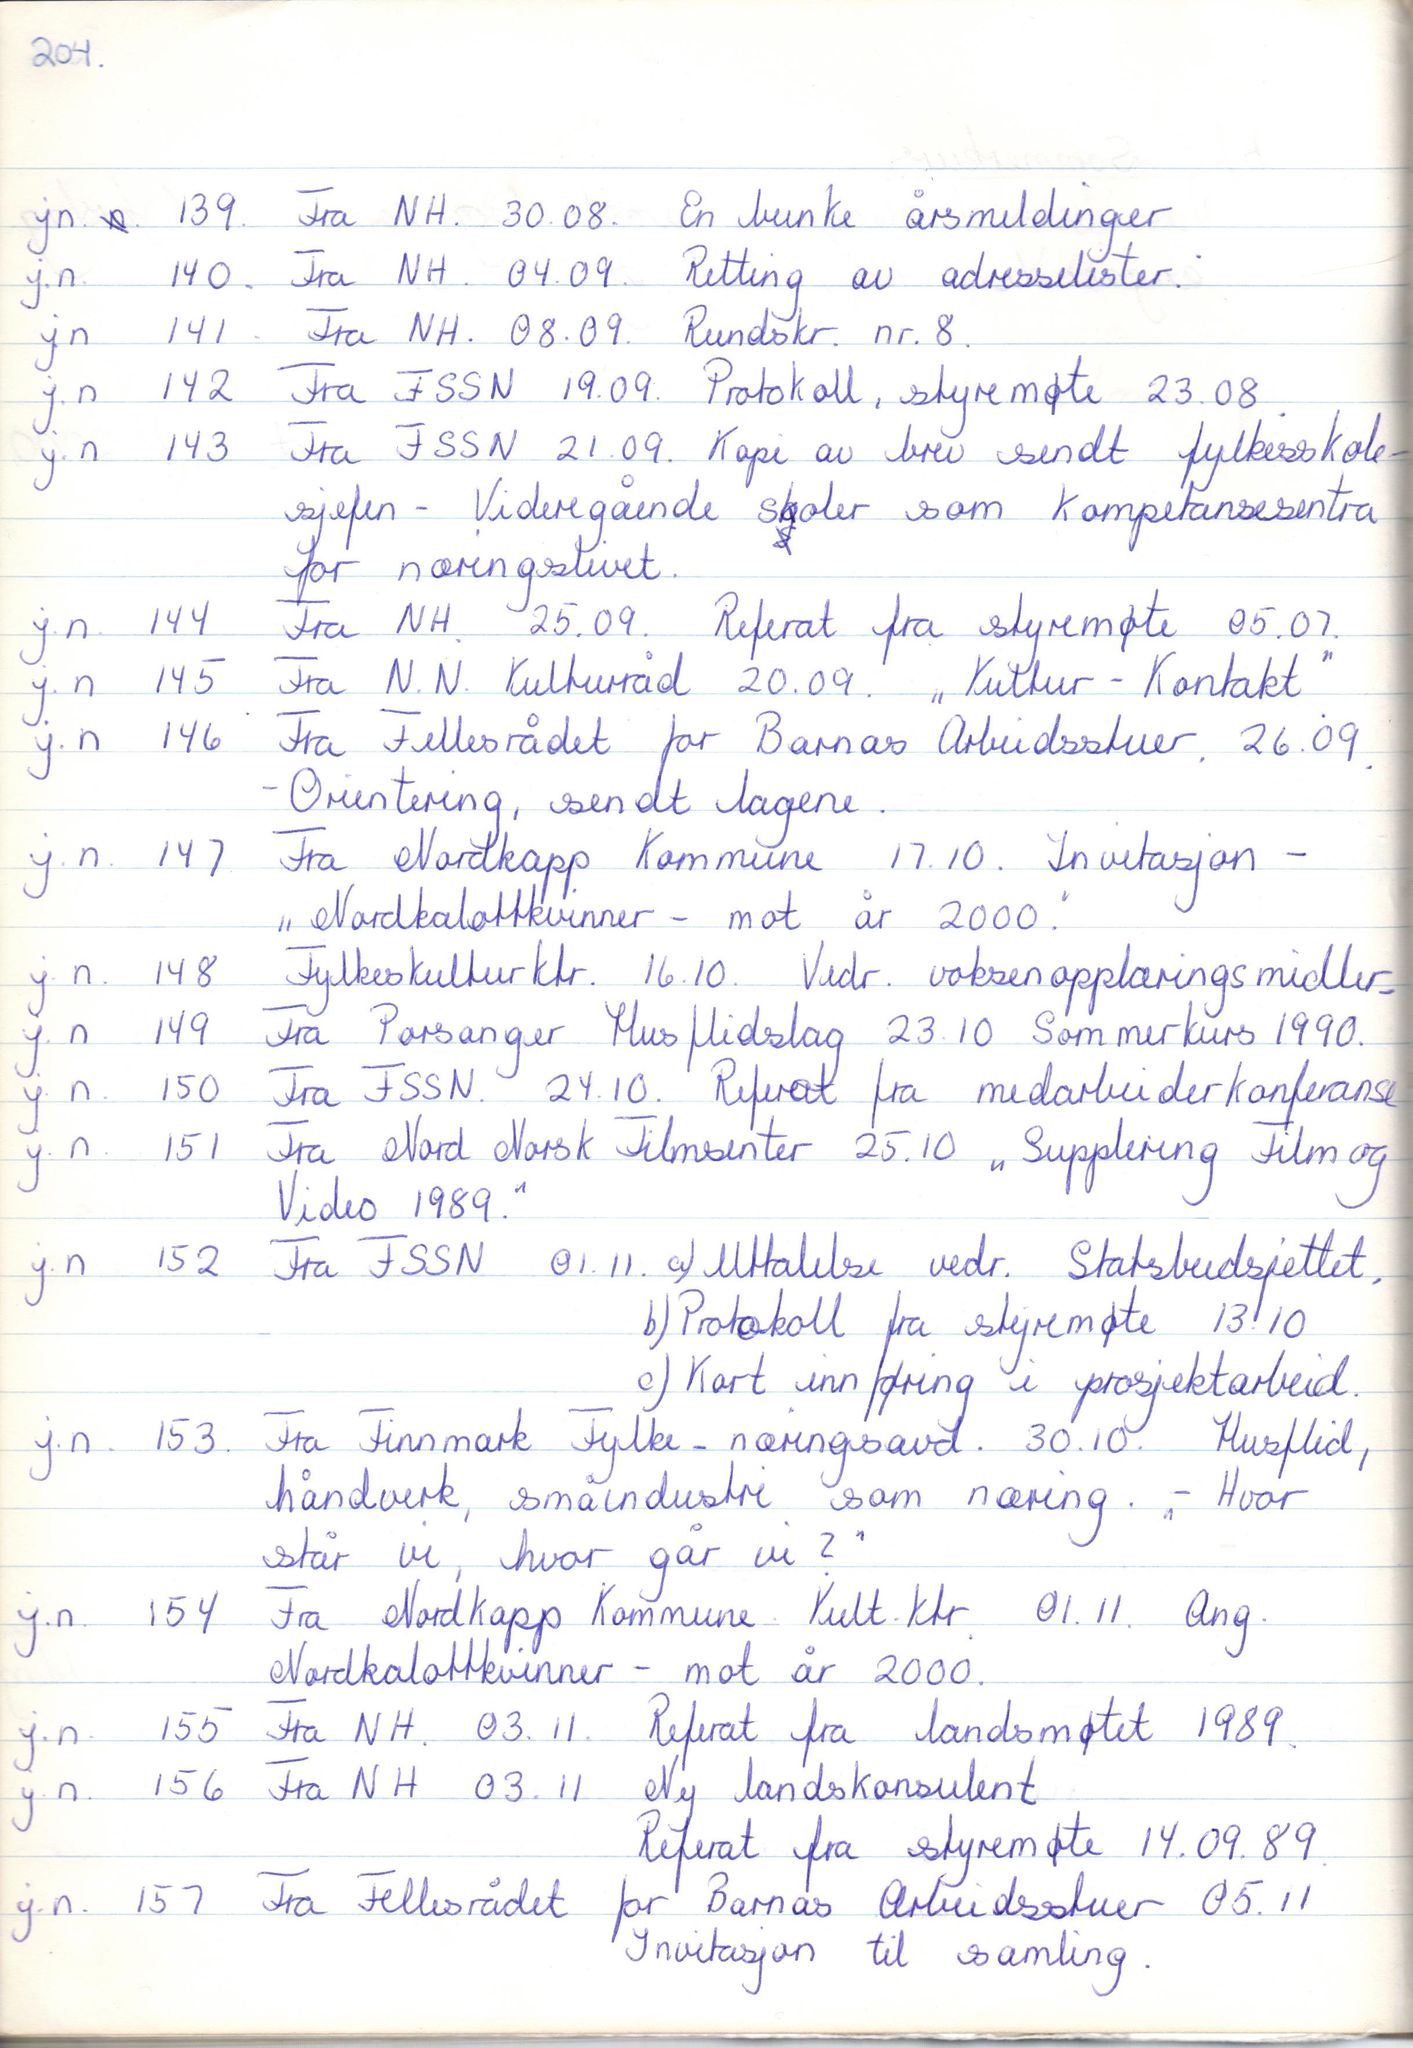 204.
j.n. 139. Fra NH. 30.08. En bunke årsmeldinger
j.n. 140. Fra NH. 04.09. Retting av adresselister.
j.n 141. Fra NH. 08.09. Rundskr. nr. 8.
j.n 142 Fra FSSN 19.09. Protokoll, styremøte 23.08.
j.n 143 Fra FSSN 21.09. Kopi av brev sendt fylkesskole-
sjefen - Videregående skoler som kompetansesentra
for næringslivet.
j.n. 144 Fra NH. 25.09. Referat fra styremøte 05.07.
j.n 145 Fra N.N. Kulturråd 20.09. „Kultur - Kontakt"
j.n 146 Fra Fellesrådet for Barnas Arbeidsstuer. 26.09.
- Orientering, sendt lagene.
j.n. 147 Fra Nordkapp Kommune 17.10. Invitasjon -
„Nordkalottkvinner - mot år 2000."
j.n. 148 Fylkeskulturktr. 16.10. Vedr. voksenopplæringsmidler.
j.n 149 Fra Porsanger Husflidslag 23.10 Sommerkurs 1990.
j.n. 150 Fra FSSN. 24.10. Referat fra medarbeiderkonferanse
j.n. 151 Fra Nord Norsk Filmsenter 25.10 „Supplering Film og
Video 1989."
j.n 152 Fra FSSN 01.11. a) Uttalelse vedr. Statsbudsjettet.
b) Protokoll fra styremøte 13.10
c) Kort innføring i prosjektarbeid.
j.n. 153. Fra Finnmark Fylke - næringsavd. 30.10. Husflid,
håndverk, småindustri som næring. „- Hvor
står vi, hvor går vi?"
j.n. 154 Fra Nordkapp Kommune Kult.ktr. 01.11. Ang.
Nordkalottkvinner - mot år 2000.
j.n. 155 Fra NH. 03.11. Referat fra landsmøtet 1989.
j.n. 156 Fra NH 03.11 Ny landskonsulent
Referat fra styremøte 14.09.89.
j.n. 157 Fra Fellesrådet for Barnas Arbeidsstuer 05.11
Invitasjon til samling.